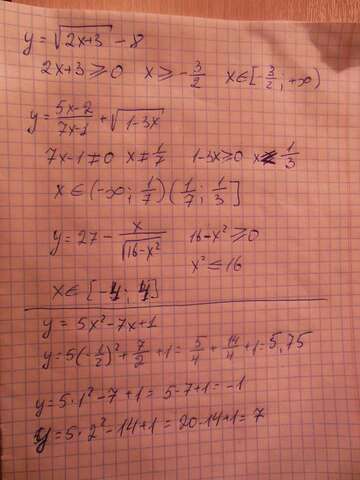 y = √(2x+3) - 8
2x+3 ≥ 0 x ≥ -3/2 x∈[-3/2; +∞)
y = (5x-2)/(7x-1) + √(1-3x)
7x-1≠0 x≠1/7 1-3x≥0 x≤1/3
x∈(-∞; 1/7)(1/7; 1/3]
y = 27 - x/√(16-x²) 16-x² ≥ 0
x² ≤ 16
x∈[-4; 4]
y = 5x²-7x+1
y = 5(-1/2)² + 7/2 + 1 = 5/4 + 14/4 + 1 = 5,75
y = 5·1²-7+1 = 5-7+1 = -1
y = 5·2²-14+1 = 20-14+1 = 7